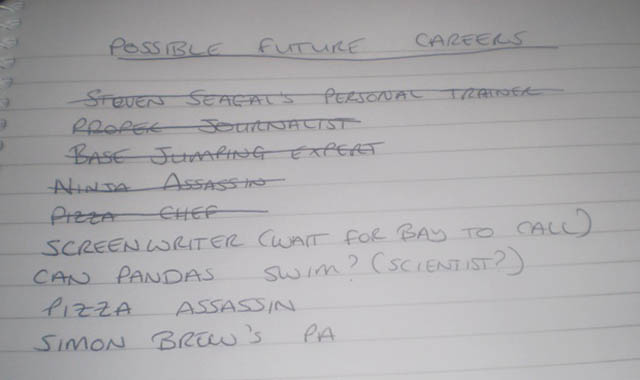 POSSIBLE FUTURE CAREERS
STEVEN SEAGAL'S PERSONAL TRAINER
PROPER JOURNALIST
BASE JUMPING EXPERT
NINJA ASSASSIN
PIZZA CHEF
SCREENWRITER (WAIT FOR BAY TO CALL)
CAN PANDAS SWIM? (SCIENTIST?)
PIZZA ASSASSIN
SIMON BREW'S PA